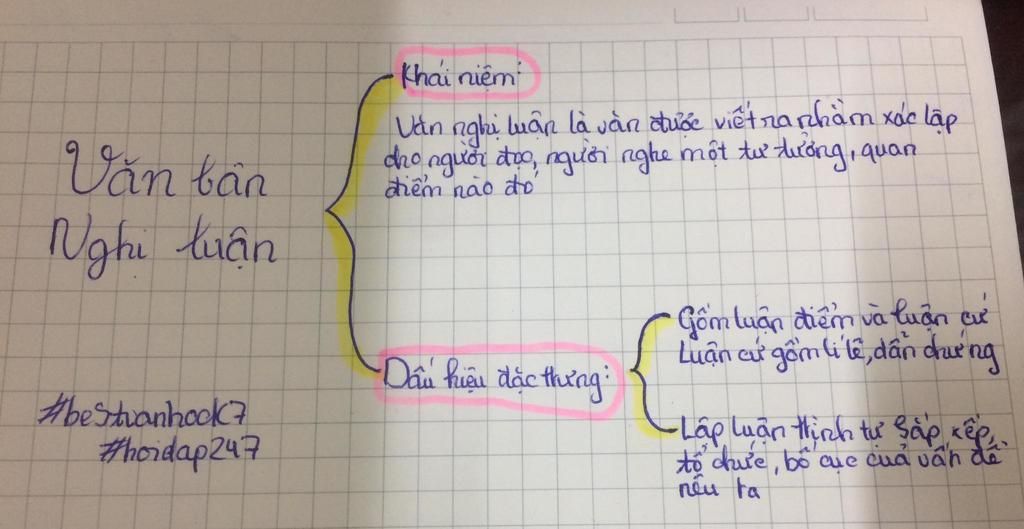 Văn bản
Nghị luận
Khái niệm:
Văn nghị luận là văn được viết ra nhằm xác lập
cho người đọc, người nghe một tư tưởng, quan
điểm nào đó
Dấu hiệu đặc trưng:
Gồm luận điểm và luận cứ
Luận cứ gồm lí lẽ, dẫn chứng
Lập luận trình tự sắp xếp,
tổ chức, bố cục của vấn đề
nêu ra
#bestvanhock7
#hoidap247